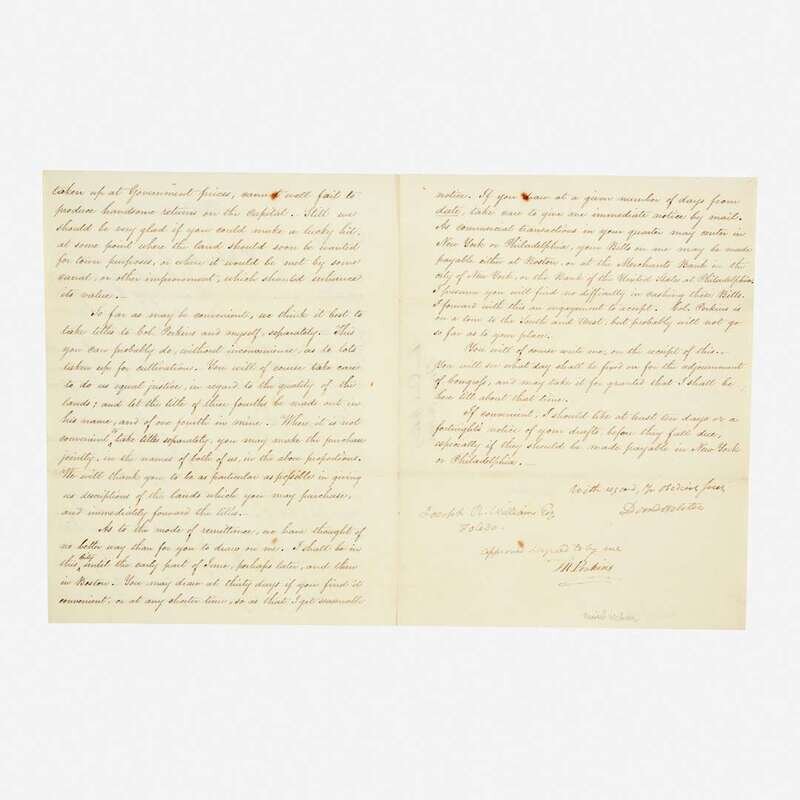 taken up at Government prices, cannot well fail to
produce handsome returns on the capital. Still we
should be very glad if you could make a lucky hit,
at some point where the land should soon be wanted
for town purposes, or where it would be met by some
canal, or other improvement, which should enhance
its value.
So far as may be convenient, we think it best to
take titles to Col. Perkins and myself, separately. This
you can probably do, without inconvenience, as to lots
taken up for cultivation. You will of course take care
to do us equal justice, in regard to the quality of the
lands; and let the title of three fourths be made out in
his name, and of one fourth in mine. Where it is not
convenient to take titles separately, you may make the purchase
jointly, in the names of both of us, in the above proportions.
We will thank you to be as particular as possible in giving
us descriptions of the lands which you may purchase,
and immediately forward the titles.
As to the mode of remittance, we have thought of
no better way than for you to draw on me. I shall be in
this City until the early part of June, perhaps later, and then
in Boston. You may draw at thirty days if you find it
convenient, or at any shorter time, so as that I get seasonable
notice. If you draw at a given number of days from
date, take care to give me immediate notice by mail.
As commercial transactions in your quarter may center in
New York or Philadelphia, your Bills on me may be made
payable either at Boston, or at the Merchants Bank in the
city of New York, or the Bank of the United States at Philadelphia.
I presume you will find no difficulty in cashing these Bills.
I forward with this an engagement to accept. Col. Perkins is
on a tour to the South and West, but probably will not go
so far as to your place.
You will of course write me, on the receipt of this.
You will see what day shall be fixed on for the adjournment
of Congress, and may take it for granted that I shall be
here till about that time.
If convenient, I should like at least ten days or a
fortnight's notice of your drafts before they fall due,
especially if they should be made payable in New York
or Philadelphia.
With regard, Yr
Danl Webster
Joseph R. Williams Esq.
Toledo.
approved & agreed to by me
Perkins